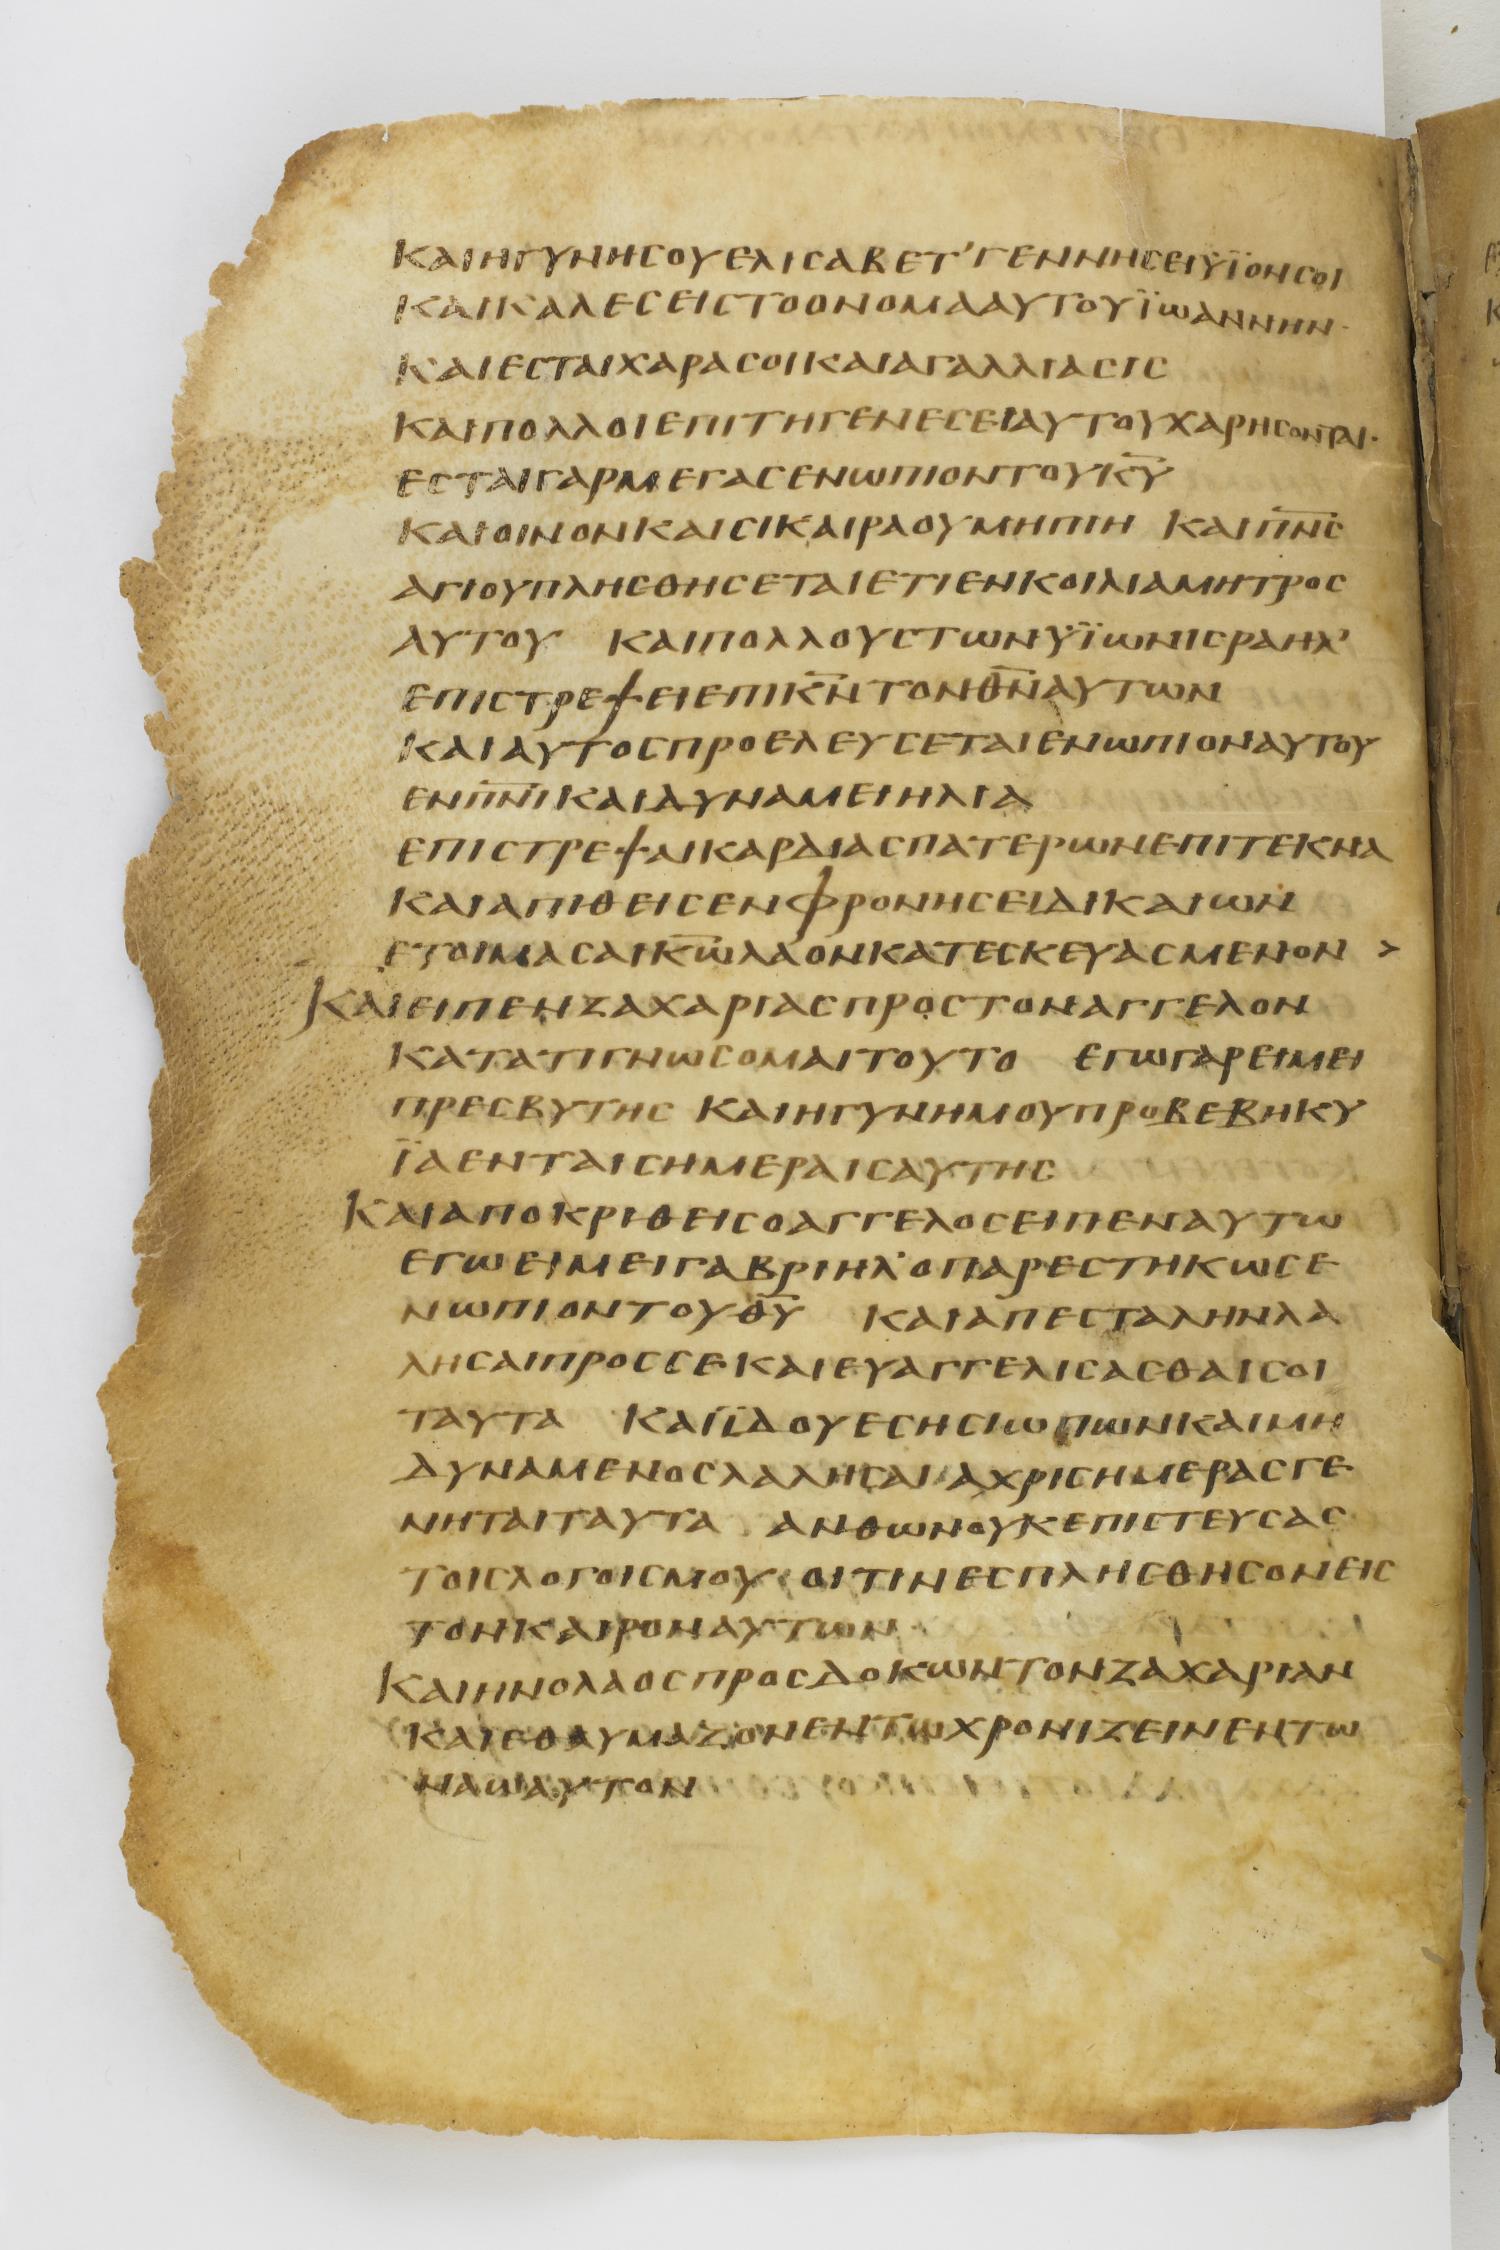 ΚΑΙΗΓΥΝΗСΟΥΕΛΙСΑΒΕΤ’ΓΕΝΝΗСΕΙΫΪΟΝСΟΙ
ΚΑΙΚΑΛΕСΕΙСΤΟΟΝΟΜΑΑΥΤΟΥΪΩΑΝΝΗΝ·
ΚΑΙΕСΤΑΙΧΑΡΑСΟΙΚΑΙΑΓΑΛΛΙΑСΙС
ΚΑΙΠΟΛΛΟΙΕΠΙΤΗΓΕΝΕСΕΙΑΥΤΟΥΧΑΡΗСΟΝΤΑΙ·
ΕСΤΑΙΓΑΡΜΕΓΑСΕΝΩΠΙΟΝΤΟΥΚ̅Υ̅
ΚΑΙΟΙΝΟΝΚΑΙСΙΚΑΙΡΑΟΥΜΗΠΙΗ ΚΑΙΠ̅Ν̅С̅
ΑΓΙΟΥΠΛΗСΘΗСΕΤΑΙΕΤΙΕΝΚΟΙΛΙΑΜΗΤΡΟС
ΑΥΤΟΥ ΚΑΙΠΟΛΛΟΥСΤΩΝΫΪΩΝΙСΡΑΗΛ’
ΕΠΙСΤΡΕΨΕΙΕΠΙΚ̅Ν̅ΤΟΝΘ̅Ν̅ΑΥΤΩΝ
ΚΑΙΑΥΤΟСΠΡΟΕΛΕΥСΕΤΑΙΕΝΩΠΙΟΝΑΥΤΟΥ
ΕΝΠ̅Ν̅Ι̅ΚΑΙΔΥΝΑΜΕΙΗΛΙΑ
ΕΠΙСΤΡΕΨΑΙΚΑΡΔΙΑСΠΑΤΕΡΩΝΕΠΙΤΕΚΝΑ
ΚΑΙΑΠΙΘΕΙСΕΝΦΡΟΝΗСΕΙΔΙΚΑΙΩΝ
ΕΤΟΙΜΑСΑΙΚ̅Ω̅ΛΑΟΝΚΑΤΕСΚΕΥΑСΜΕΝΟΝ >
ΚΑΙΕΙΠΕΝΖΑΧΑΡΙΑСΠΡΟСΤΟΝΑΓΓΕΛΟΝ
ΚΑΤΑΤΙΓΝΩСΟΜΑΙΤΟΥΤΟ ΕΓΩΓΑΡΕΙΜΕΙ
ΠΡΕСΒΥΤΗС ΚΑΙΗΓΥΝΗΜΟΥΠΡΟΒΕΒΗΚΥ
ΪΑΕΝΤΑΙСΗΜΕΡΑΙСΑΥΤΗС
ΚΑΙΑΠΟΚΡΙΘΕΙСΟΑΓΓΕΛΟСΕΙΠΕΝΑΥΤΩ
ΕΓΩΕΙΜΕΙΓΑΒΡΙΗΛ’ΟΠΑΡΕСΤΗΚΩСΕ
ΝΩΠΙΟΝΤΟΥΘ̅Υ̅ ΚΑΙΑΠΕСΤΑΛΗΝΛΑ
ΛΗСΑΙΠΡΟССΕΚΑΙΕΥΑΓΓΕΛΙСΑСΘΑΙСΟΙ
ΤΑΥΤΑ ΚΑΙΪΔΟΥΕСΗСΙΩΠΩΝΚΑΙΜΗ
ΔΥΝΑΜΕΝΟСΛΑΛΗСΑΙΑΧΡΙСΗΜΕΡΑСΓΕ
ΝΗΤΑΙΤΑΥΤΑ ΑΝΘΩΝΟΥΚΕΠΙСΤΕΥСΑС
ΤΟΙСΛΟΓΟΙСΜΟΥ ΟΙΤΙΝΕСΠΛΗСΘΗСΟΝΕΙС
ΤΟΝΚΑΙΡΟΝΑΥΤΩΝ
ΚΑΙΗΝΟΛΑΟСΠΡΟСΔΟΚΩΝΤΟΝΖΑΧΑΡΙΑΝ
ΚΑΙΕΘΑΥΜΑΖΟΝΕΝΤΩΧΡΟΝΙΖΕΙΝΕΝΤΩ
ΝΑΩΑΥΤΟΝ